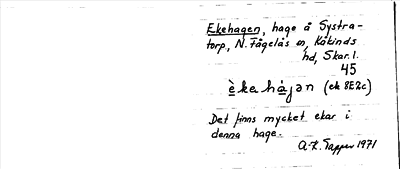 Ekehagen, hage å Systra-
torp, N. Fågelås sn, Kåkinds
hd, Skar. l.
45
èkehàjən (ek 8E2c)
Det finns mycket ekar i
denna hage.
A-K. Tapper 1971